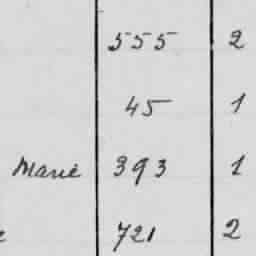 555 2
45 1
Marie 393 1
721 2